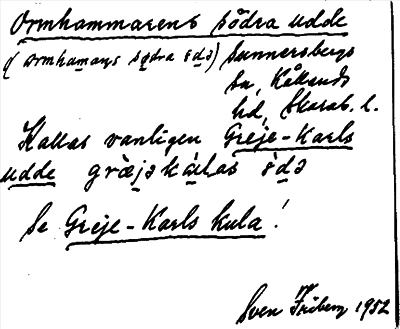 Ormhammarens södra udde
(ormhamaɳs sødra ùdə) Sunnersbergs
sn, Kållands
hd, Skarab. l.
Kallas vanligen Greje-Karls
udde græ̀jəkàlas ùdə
Se Greje-Karls kula!
Sven Friberg 1952